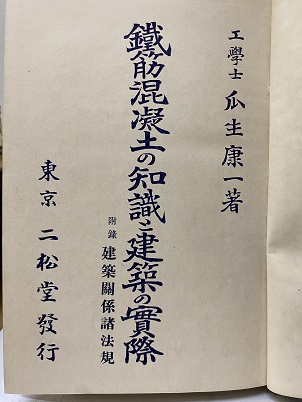 工學士 瓜生康一著
鐵筋混凝土の知識と建築の實際
附錄 建築關係諸法規
東京 二松堂發行